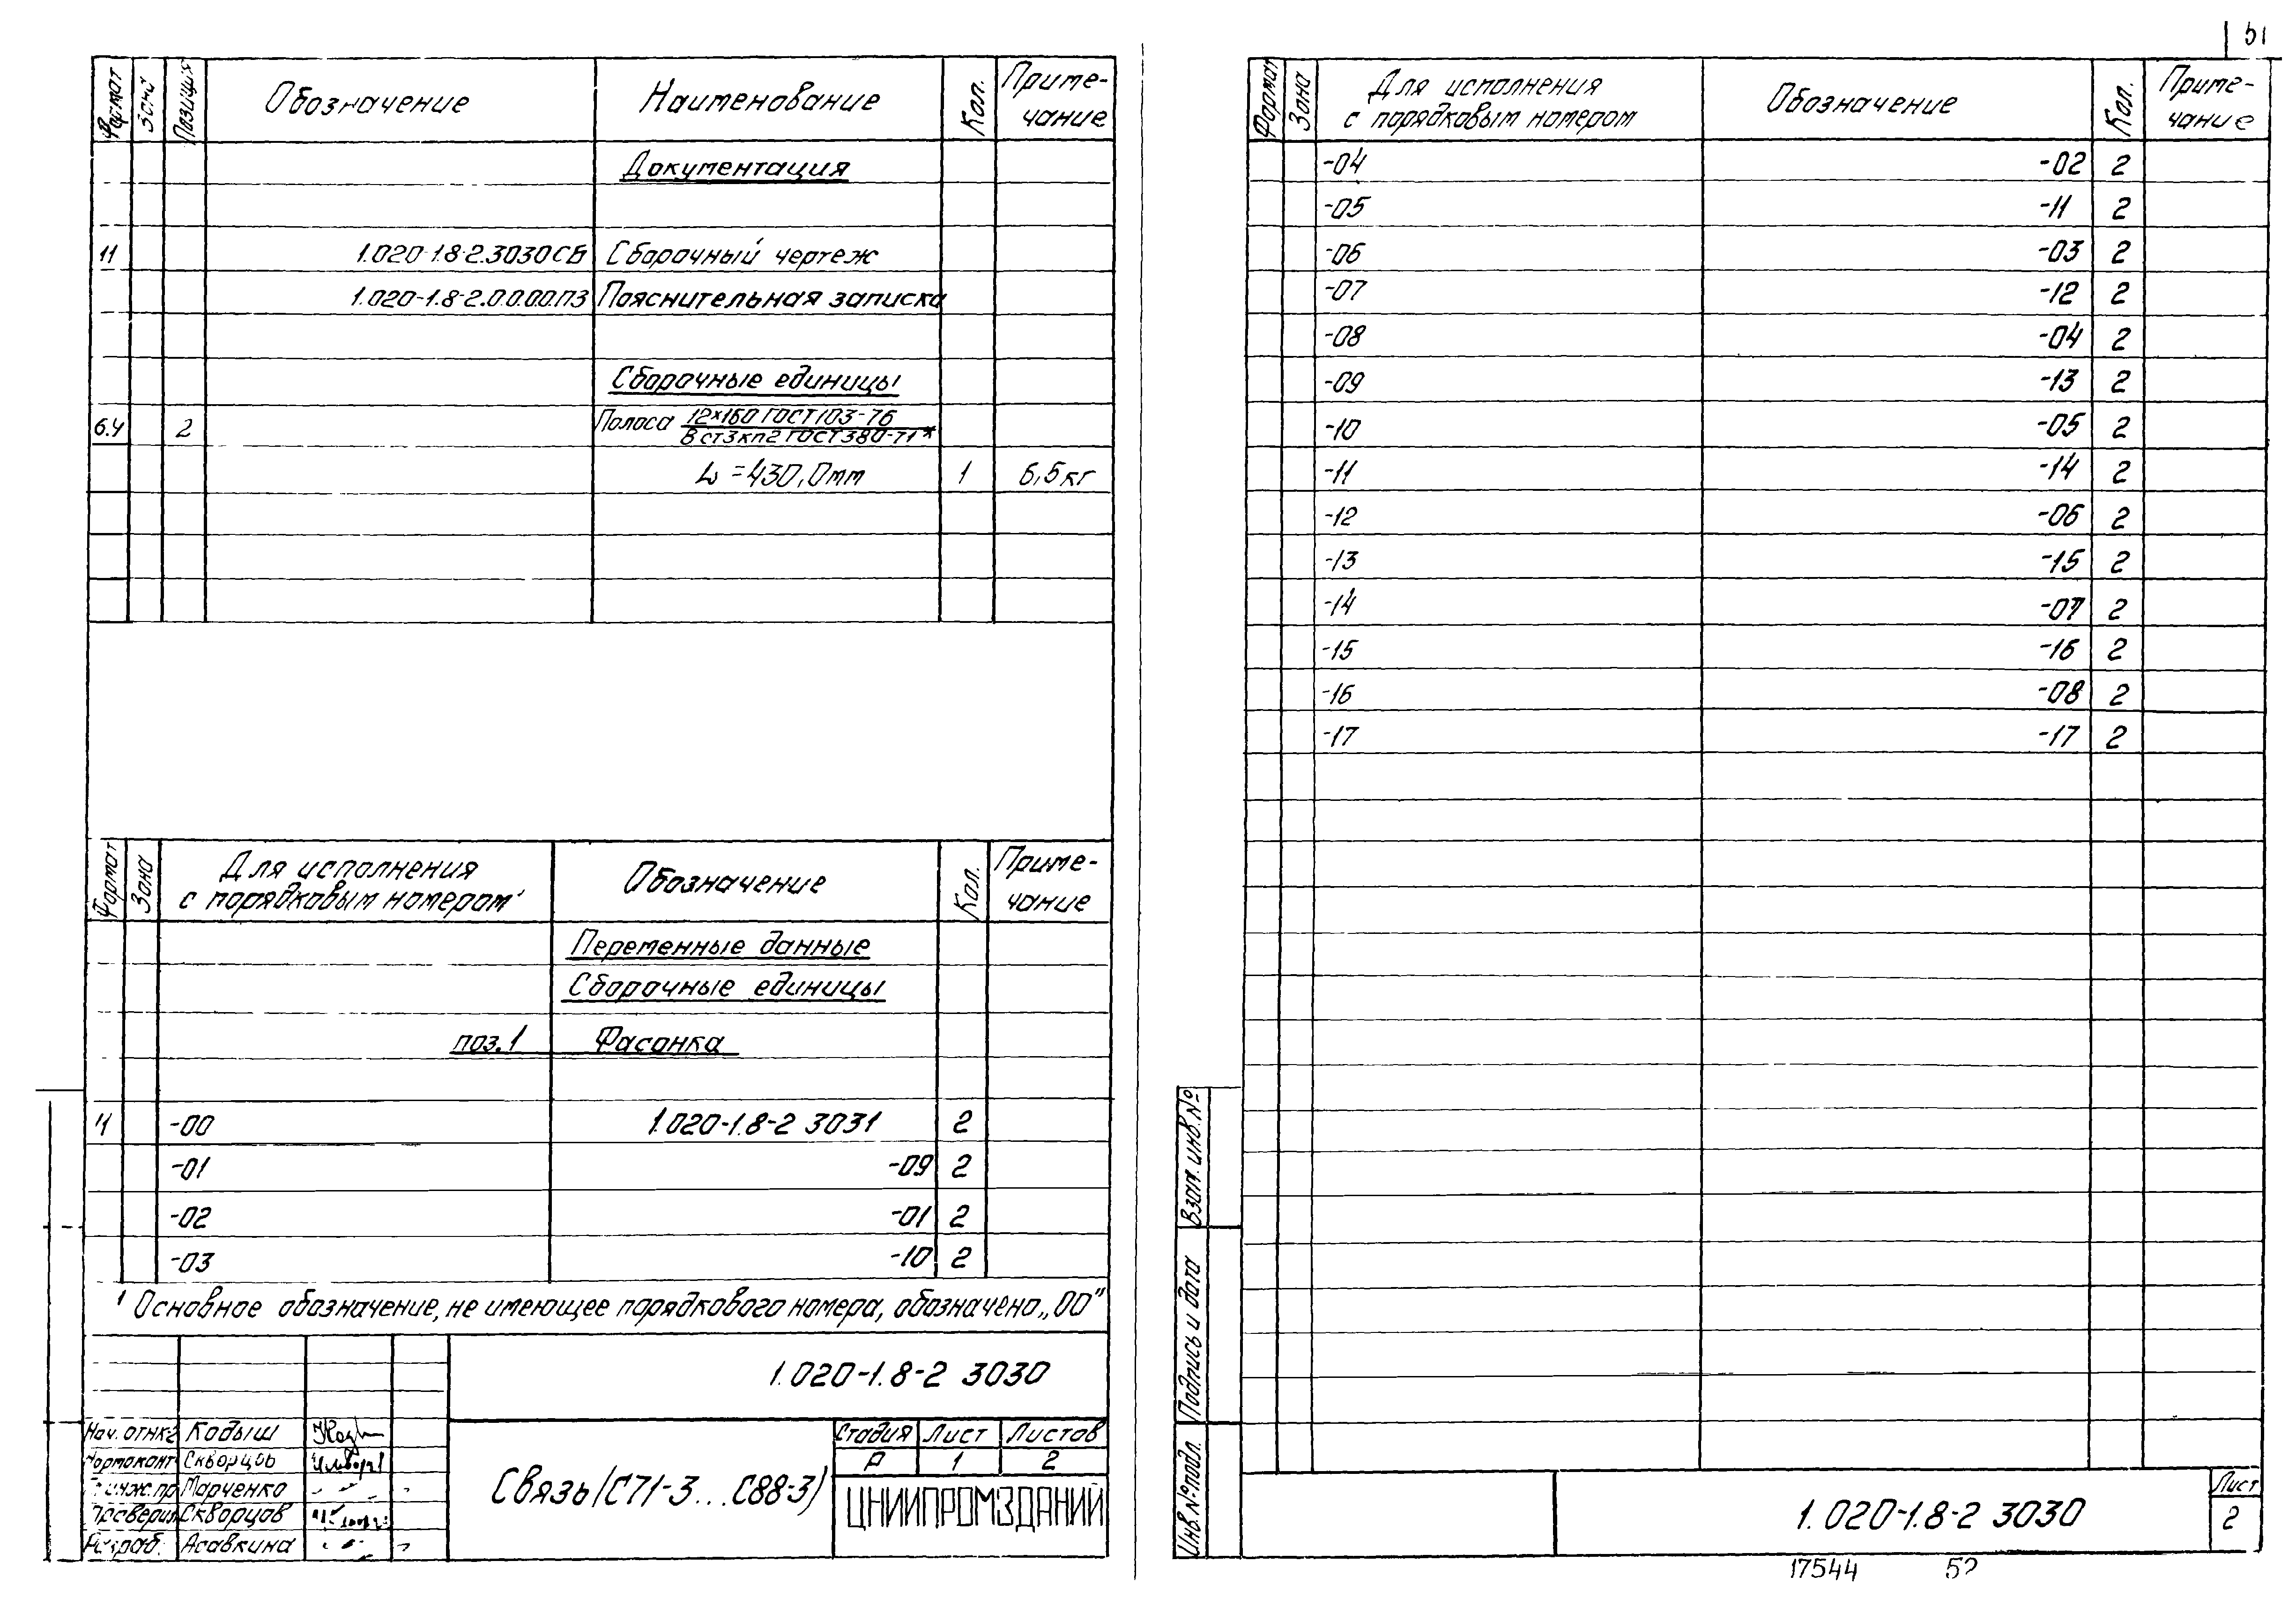 51
Формат Зона Позиция Обозначение Наименование Кол. Приме-
чание
Документация
11 1.020-1.8-2.3030СБ Сборочный чертеж
1.020-1.8-2.0.0.00ПЗ Пояснительная записка
Сборочные единицы
б.ч 2 Полоса 12×160 ГОСТ 103-76
В ст3 кп2 ГОСТ 380-71*
L=430,0мм 1 6,5кг
Формат Зона Для исполнения
с порядковым номером¹ Обозначение Кол. Приме-
чание
Переменные данные
Сборочные единицы
поз.1 Фасонка
11 -00 1.020-1.8-2 3031 2
-01 -09 2
-02 -01 2
-03 -10 2
¹ Основное обозначение, не имеющее порядкового номера, обозначено „00"
1.020-1.8-2 3030
Нач. Кодыш
Скворцов
Марченко
Скворцов
Разраб. Асавкина
Связь (С71-3...С88-3)
Стадия Лист Листов
Р 1 2
ЦНИИПРОМЗДАНИЙ
Формат Зона Для исполнения
с порядковым номером Обозначение Кол. Приме-
чание
-04 -02 2
-05 -11 2
-06 -03 2
-07 -12 2
-08 -04 2
-09 -13 2
-10 -05 2
-11 -14 2
-12 -06 2
-13 -15 2
-14 -07 2
-15 -16 2
-16 -08 2
-17 -17 2
Взам. инв. №
Подпись и дата
Инв. № подл.
1.020-1.8-2 3030
Лист
2
17544 52